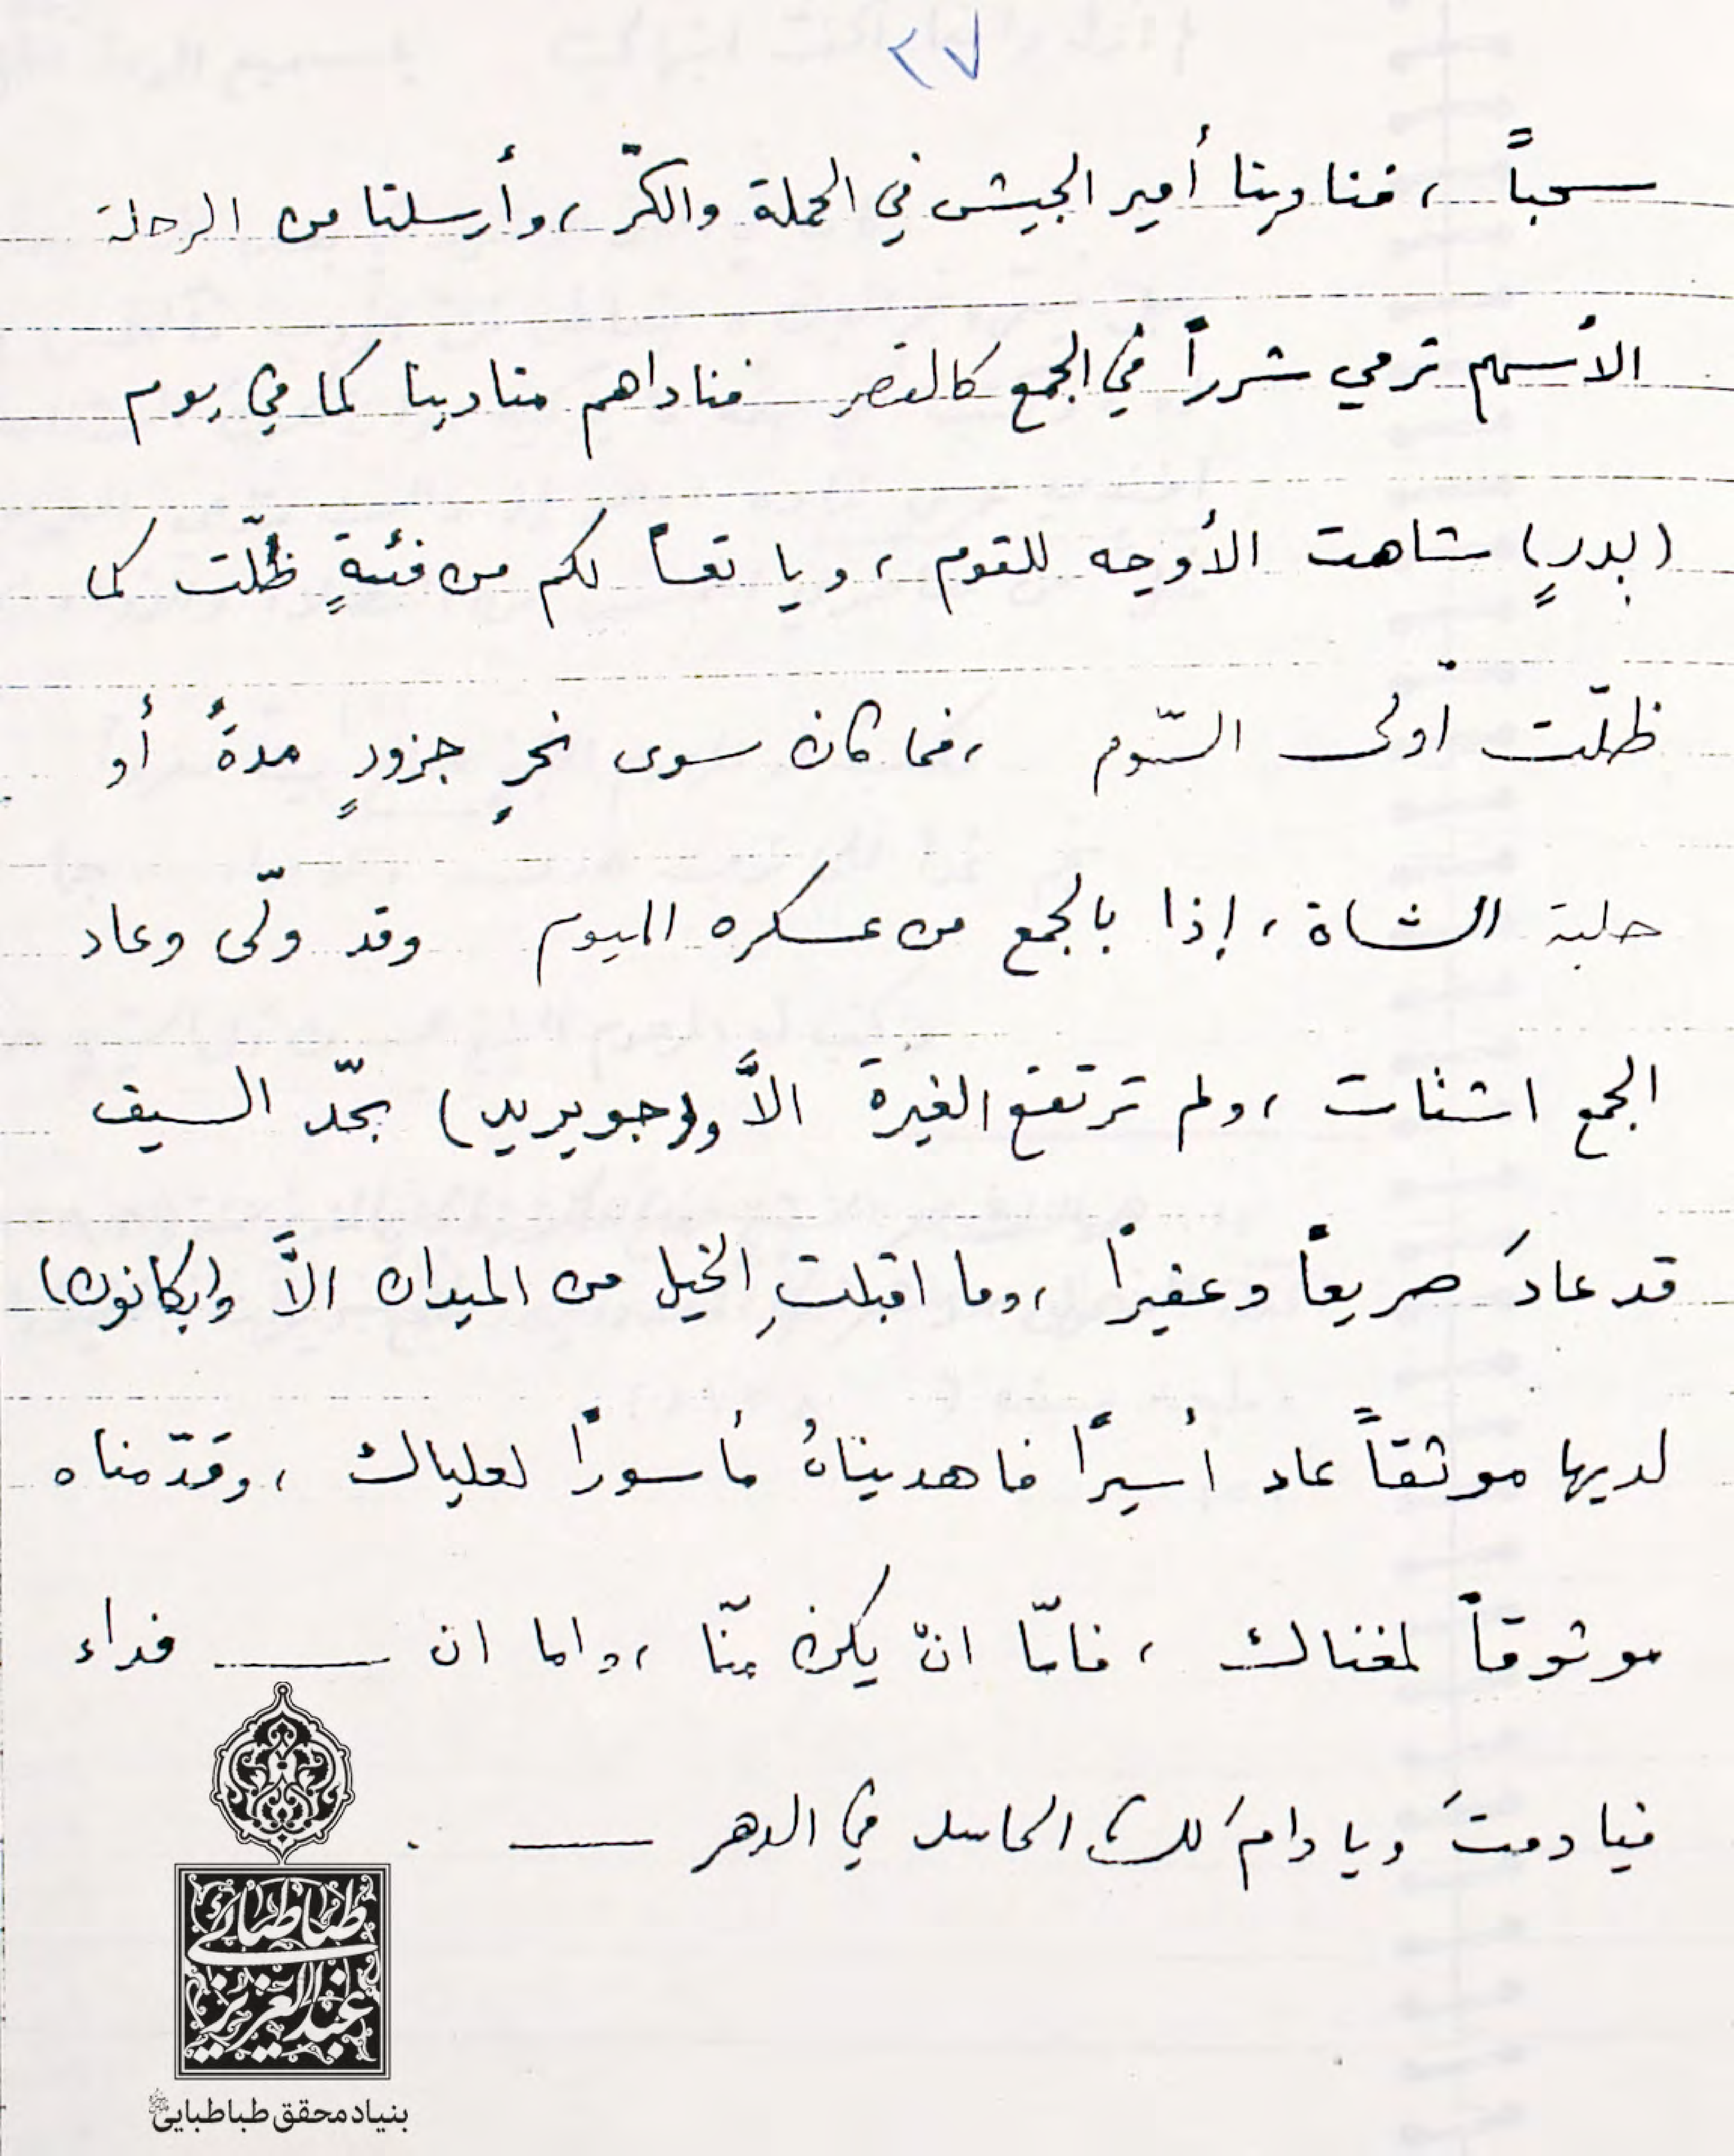 ٣٧
سحباً ، فنادينا أمير الجيش في الحملة والكرّ ، وأرسلنا من الرحلة
الأسهم ترمي شرراً في الجمع كالقصر فناداهم منادينا كما في يوم
(بدرٍ) شاهت الأوجه للقوم ، ويا تعساً لكم من فئةٍ ظلّت كما
ظلّت اولى السّوم ، فما كان سوى نحرٍ جزورٍ مدةً أو
حلبة الشاة ، إذا بالجمع من عسكره اليوم وقد ولّى وعاد
الجمع اشتات ، ولم ترتفع الغبرة الاَّ و(جويريد) بحّد السيف
قد عادَ صريعاً وعفيراً ، وما اقبلتِ الخيل من الميدان الاَّ و(بكانون)
لديها موثقاً عاد أسيراً فاهديناهُ مأسوراً لعلياك ، وقدّمناه
موثوقاً لمغناك ، فامّا ان يكن منّا ، واما ان ــــ فداء
فيا دمتَ ويا دامَ لك في الدهر ــــ .
طباطبائي
عبدالعزيز
بنیاد محقق طباطبایی